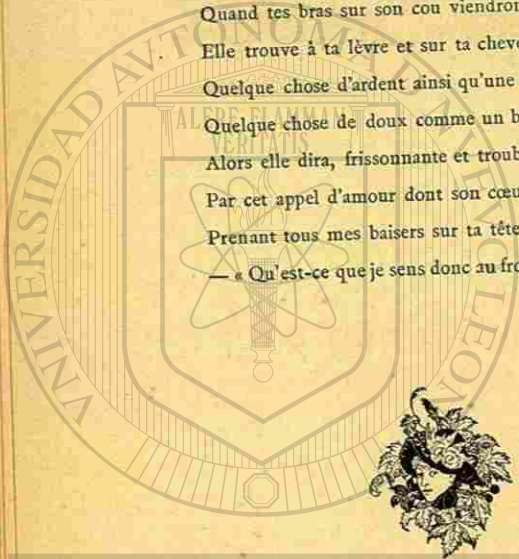 Quand tes bras sur son cou
Elle trouve à ta lèvre et sur ta
Quelque chose d'ardent ainsi qu'une
Quelque chose de doux comme un
Alors elle dira, frissonnante et
Par cet appel d'amour dont son
Prenant tous mes baisers sur ta tête
— « Qu'est-ce que je sens donc au
UNIVERSIDAD AUTONOMA DE NUEVO LEON
ALERE FLAMMAM
VERITATIS